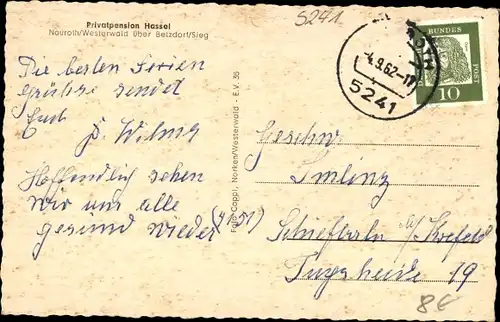 Privatpension Hassel
Nauroth/Westerwald über Betzdorf/Sieg
5241
-4.9.62-17
5241
BUNDES
POST
10
Die besten Ferien
grüsse sendet
Euch
J. Wilms
Hoffendlich sehen
wir uns alle
gesund wieder
Foto Cappi, Norken/Westerwald - E.V. 35
Geschw.
Schiefbahn b/ Krefeld
19
8€